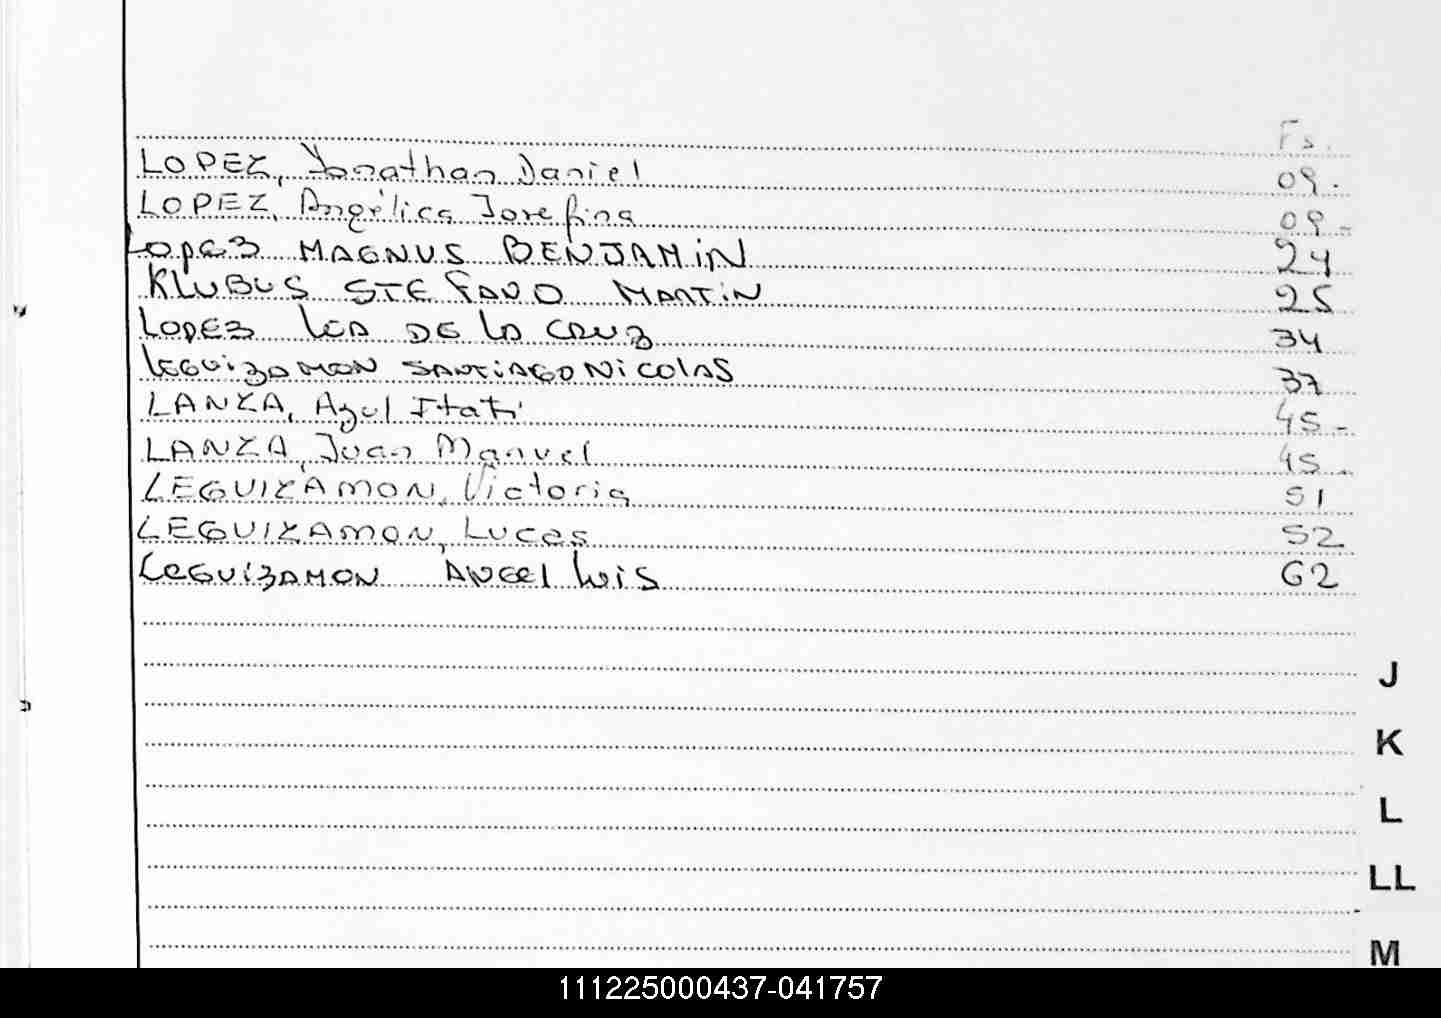 Fs.
LOPEZ, Jonathan Daniel 09.
LOPEZ, Angélica Josefina 09-
Lopez MAGNUS BENJAMiN 24
KLUBUS STEFANO MARTiN 25
LOPEZ LEA DE LA CRUZ 34
LEGUiZAMON SANTiAGO NiCOLAS 37
LANZA, Azul Itatí 45-
LANZA, Juan Manuel 45-
LEGUIZAMON, Victoria 51
LEGUIZAMON, Lucas 52
LEGUiZAMON ANGEL LUiS 62
J
K
L
LL
M
111225000437-041757